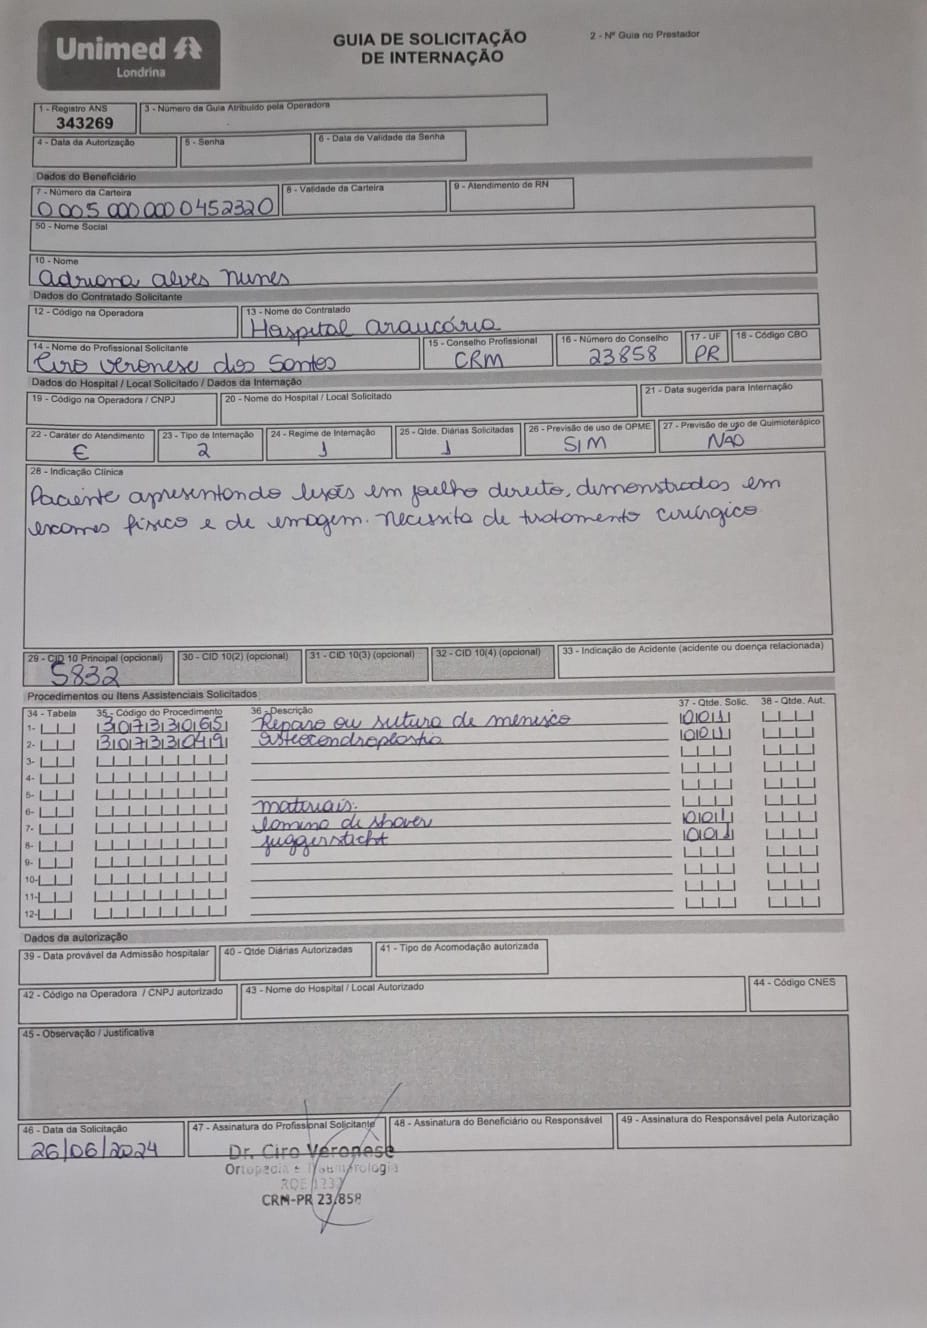 Unimed
Londrina
GUIA DE SOLICITAÇÃO
DE INTERNAÇÃO
2 - Nº Guia no Prestador
1 - Registro ANS
343269
3 - Número da Guia Atribuído pela Operadora
4 - Data da Autorização
5 - Senha
6 - Data de Validade da Senha
Dados do Beneficiário
7 - Número da Carteira
0 005 000 000 0452320
8 - Validade da Carteira
9 - Atendimento de RN
50 - Nome Social
10 - Nome
Adriana alves nunes
Dados do Contratado Solicitante
12 - Código na Operadora
13 - Nome do Contratado
Hospital araucária
14 - Nome do Profissional Solicitante
Ciro Veronese dos Santos
15 - Conselho Profissional
CRM
16 - Número do Conselho
23858
17 - UF
PR
18 - Código CBO
Dados do Hospital / Local Solicitado / Dados da Internação
19 - Código na Operadora / CNPJ
20 - Nome do Hospital / Local Solicitado
21 - Data sugerida para Internação
22 - Caráter do Atendimento
E
23 - Tipo de Internação
2
24 - Regime de Internação
1
25 - Qtde. Diárias Solicitadas
1
26 - Previsão de uso de OPME
SIM
27 - Previsão de uso de Quimioterápico
NAO
28 - Indicação Clínica
Paciente apresentando lesões em joelho direito, demonstrados em
exames físico e de imagem. necessita de tratamento cirúrgico
29 - CID 10 Principal (opcional)
S832
30 - CID 10(2) (opcional)
31 - CID 10(3) (opcional)
32 - CID 10(4) (opcional)
33 - Indicação de Acidente (acidente ou doença relacionada)
Procedimentos ou Itens Assistenciais Solicitados
34 - Tabela 35 - Código do Procedimento 36 - Descrição 37 - Qtde. Solic. 38 - Qtde. Aut.
1- 30733065 Reparo ou sutura de menisco 001
2- 30733049 osteocondroplastia 001
3-
4-
5-
6- materiais.
7- lamina de shaver 001
8- juggersticht 001
9-
10-
11-
12-
Dados da autorização
39 - Data provável da Admissão hospitalar
40 - Qtde Diárias Autorizadas
41 - Tipo de Acomodação autorizada
42 - Código na Operadora / CNPJ autorizado
43 - Nome do Hospital / Local Autorizado
44 - Código CNES
45 - Observação / Justificativa
46 - Data da Solicitação
26/06/2024
47 - Assinatura do Profissional Solicitante
48 - Assinatura do Beneficiário ou Responsável
49 - Assinatura do Responsável pela Autorização
Dr. Ciro Veronese
Ortopedia e Traumatologia
RQE
CRM-PR 23/858